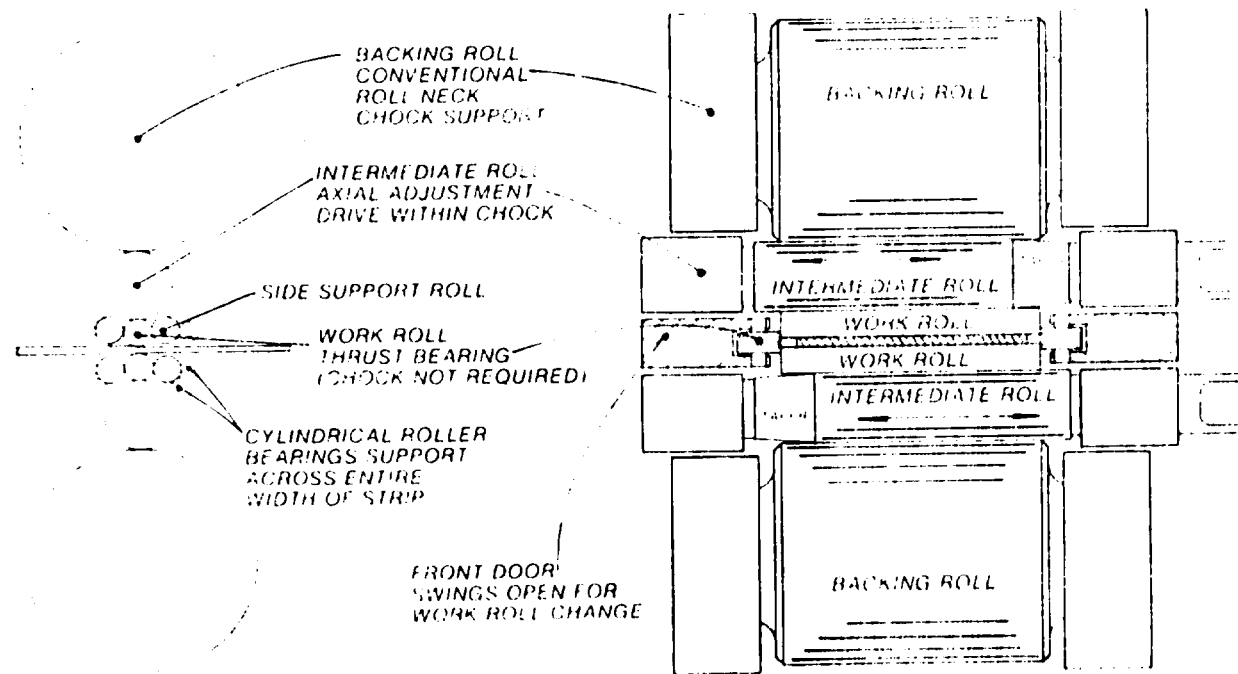 BACKING ROLL
CONVENTIONAL
ROLL NECK
CHOCK SUPPORT
INTERMEDIATE ROLL
AXIAL ADJUSTMENT
DRIVE WITHIN CHOCK
SIDE SUPPORT ROLL
WORK ROLL
THRUST BEARING
(CHOCK NOT REQUIRED)
CYLINDRICAL ROLLER
BEARINGS SUPPORT
ACROSS ENTIRE
WIDTH OF STRIP
FRONT DOOR
SWINGS OPEN FOR
WORK ROLL CHANGE
BACKING ROLL
INTERMEDIATE ROLL
WORK ROLL
WORK ROLL
INTERMEDIATE ROLL
BACKING ROLL